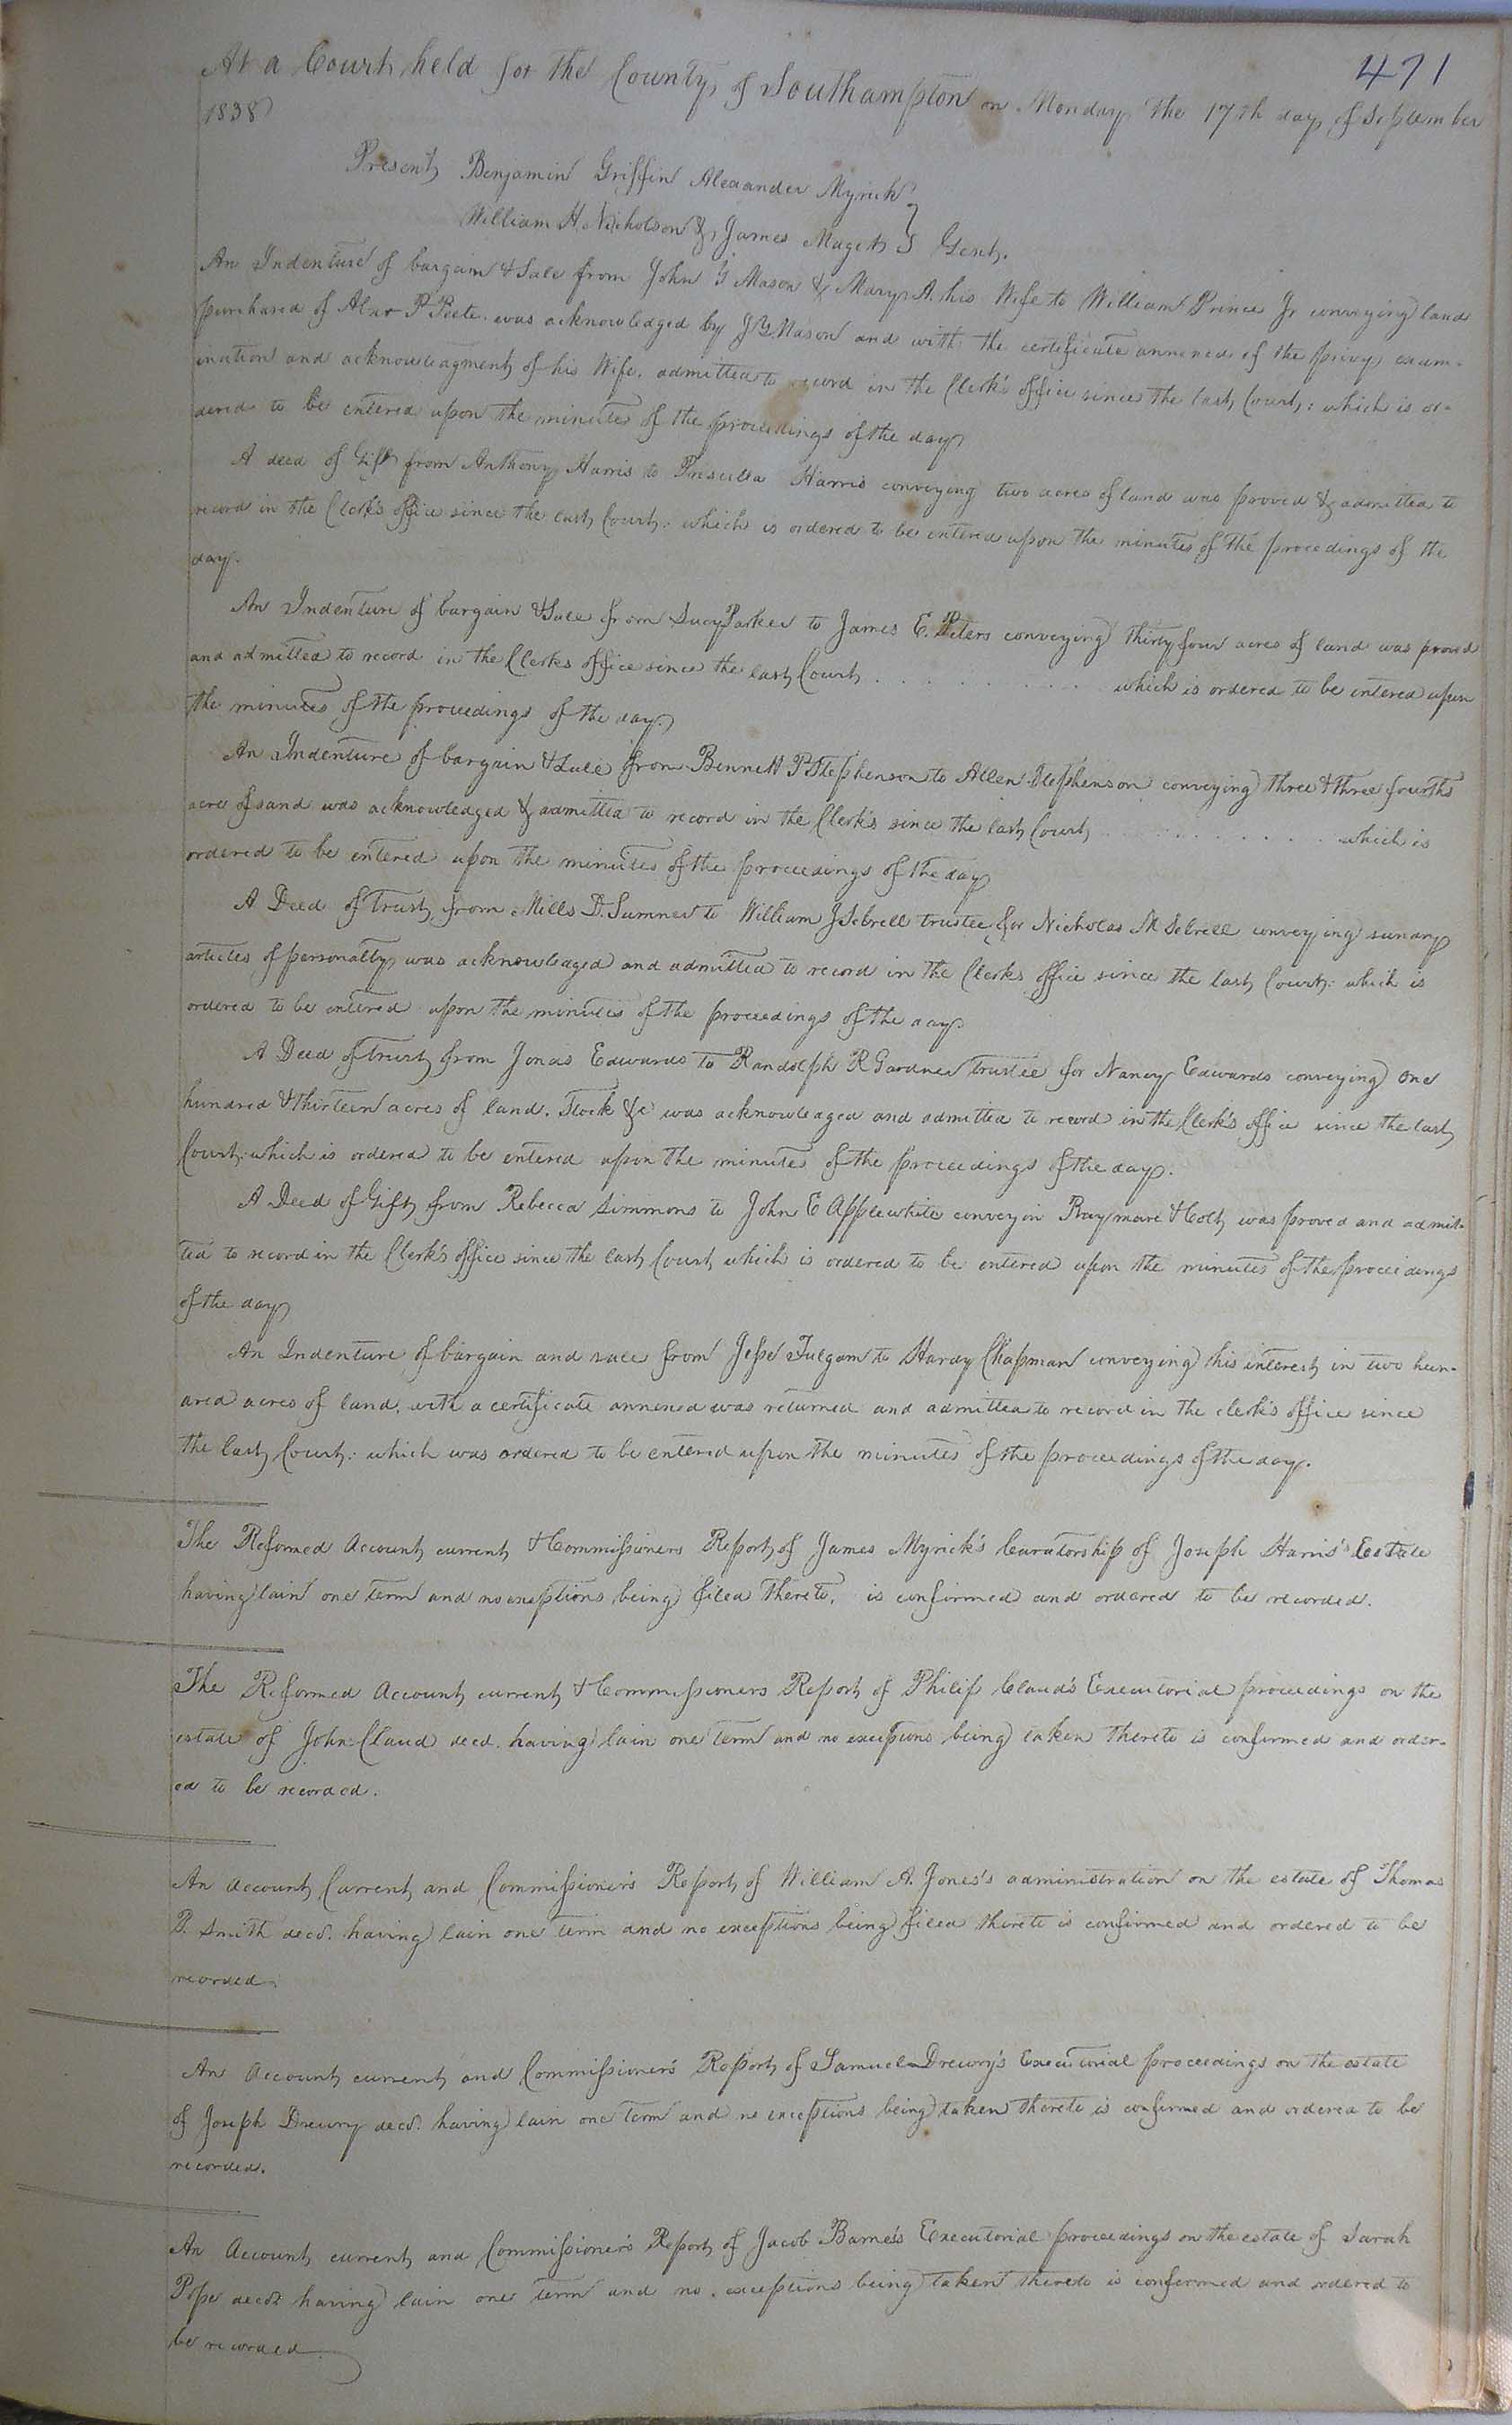 471
At a Court held for the County of Southampton on Monday the 17th day of September
1838
Present Benjamin Griffin Alexander Myrick }
William H. Nicholson & James Magett } Gent.
An Indenture of bargain & Sale from John Y Mason & Mary A. his Wife to William Prince Jr conveying land
purchased of Alexr P Peete was acknowledged by J Y. Mason and with the certificate annexed of the privy exam-
ination and acknowledgment of his Wife, admitted to record in the Clerk's office since the last Court; which is or-
dered to be entered upon the minutes of the proceedings of the day
A deed of Gift from Anthony Harris to Prescilla Harris conveying two acres of land was proved & admitted to
record in the Clerk's office since the last Court: which is ordered to be entered upon the minutes of the proceedings of the
day.
An Indenture of bargain & Sale from Lucy Parker to James E. Peters conveying thirty four acres of land was proved
and admitted to record in the Clerks office since the last Court . . . . . . . . . . . which is ordered to be entered upon
the minutes of the proceedings of the day.
An Indenture of bargain & Sale from Bennett P Stephenson to Allen Stephenson conveying three & three fourths
acre of sand was acknowledged & admitted to record in the Clerk's since the last Court . . . . . . . . . . . . which is
ordered to be entered upon the minutes of the proceedings of the day
A Deed of Trust from Mills D. Sumner to William J Sebrell trustee for Nicholas M Sebrell conveying sundry
articles of personalty was acknowledged and admitted to record in the Clerks office since the last Court: which is
ordered to be entered upon the minutes of the proceedings of the day
A Deed of trust from Jonas Edwards to Randolph R Gardner trustee for Nancy Edwards conveying One
hundred & thirteen acres of land. Stock &c was acknowledged and admitted to record in the Clerk's office since the last
Court: which is ordered to be entered upon the minutes of the proceedings of the day.
A Deed of Gift from Rebecca Simmons to John E Applewhite conveyin Bay mare & Colt was proved and admit-
ted to record in the Clerk's office since the last Court which is ordered to be entered upon the minutes of the proceedings
of the day
An Indenture of bargain and sale from Jesse Fulgam to Hardy Chapman conveying his interest in two hun-
dred acres of land. with a certificate annexed was returned and admitted to record in the clerk's office since
the last Court: which was ordered to be entered upon the minutes of the proceedings of the day.
The Reformed Account current & Commissioners Report of James Myrick's Curatorship of Joseph Harris's Estate
having lain one term and no exceptions being filed thereto, is confirmed and ordered to be recorded.
The Reformed Account current & Commissioners Report of Philip Claud's Executorial proceedings on the
estate of John Claud decd. having lain one term and no exceptions being taken thereto is confirmed and order-
ed to be recorded.
An Account Current and Commissioner's Report of William A. Jones's administration on the estate of Thomas
P. Smith decd. having lain one term and no exceptions being filed thereto is confirmed and ordered to be
recorded.
An Account current and Commissioner's Report of Samuel Drewry's Executorial proceedings on the estate
of Joseph Drewry decd. having lain one term and no exceptions being taken thereto is confirmed and ordered to be
recorded.
An Account current and Commissioner's Report of Jacob Barnes's Executorial proceedings on the estate of Sarah
Pope decd. having lain one term and no exceptions being taken thereto is confirmed and ordered to
be recorded